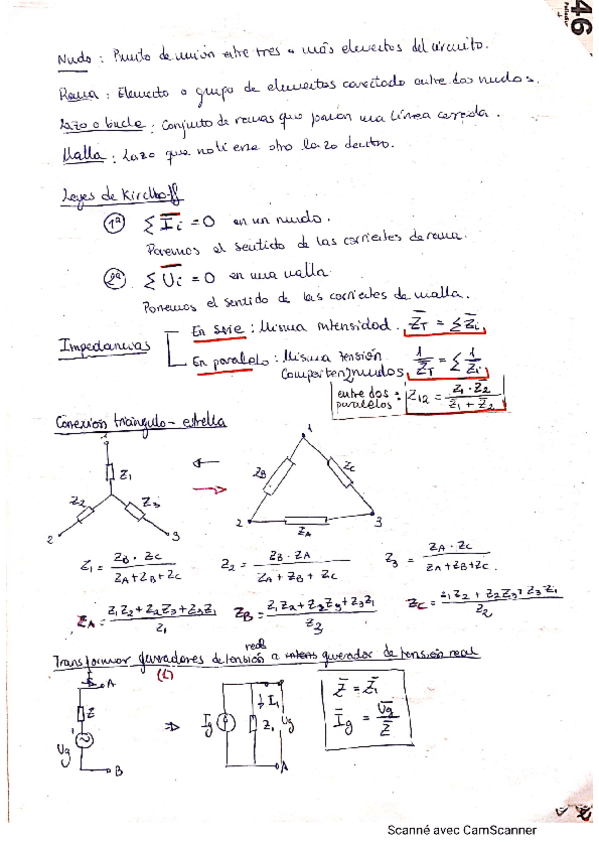 46
Nudo : Punto de unión entre tres o más elementos del circuito.
Rama : Elemento o grupo de elementos conectado entre dos nudos.
Lazo o bucle : Conjunto de ramas que forman una línea cerrada.
Malla : Lazo que no tiene otro lazo dentro.
Leyes de Kirchhoff
1ª Σ Ii = 0 en un nudo.
Ponemos el sentido de las corrientes de rama.
2ª Σ Ui = 0 en una malla
Ponemos el sentido de las corrientes de malla.
Impedancias
En serie : Misma intensidad. ZT = Σ Zi
En paralelo : Misma tensión 1/ZT = Σ 1/Zi
Comparten 2 nudos
entre dos paralelos : Z12 = Z1 · Z2 / Z1 + Z2
Conexión triángulo - estrella
1 Z1 Z2 Z3 2 3
1 ZB ZC 2 ZA 3
Z1 = ZB · ZC / ZA + ZB + ZC Z2 = ZB · ZA / ZA + ZB + ZC Z3 = ZA · ZC / ZA + ZB + ZC
ZA = Z1Z2 + Z2Z3 + Z3Z1 / Z1 ZB = Z1Z2 + Z2Z3 + Z3Z1 / Z3 ZC = Z1Z2 + Z2Z3 + Z3Z1 / Z2
real
Transformar generadores de tensión a intens generador de tensión real
A Z Ug B
⇒ Ig I1 Z1 Ug A
Z = Z1
Ig = Ug / Z
Scanné avec CamScanner